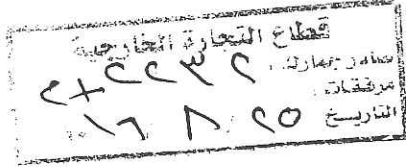 قطاع التجارة الخارجية
صادر جمارك ٢٢٣٢
مرفقات ٢+
التاريخ ٢٥ ٨ ١٦